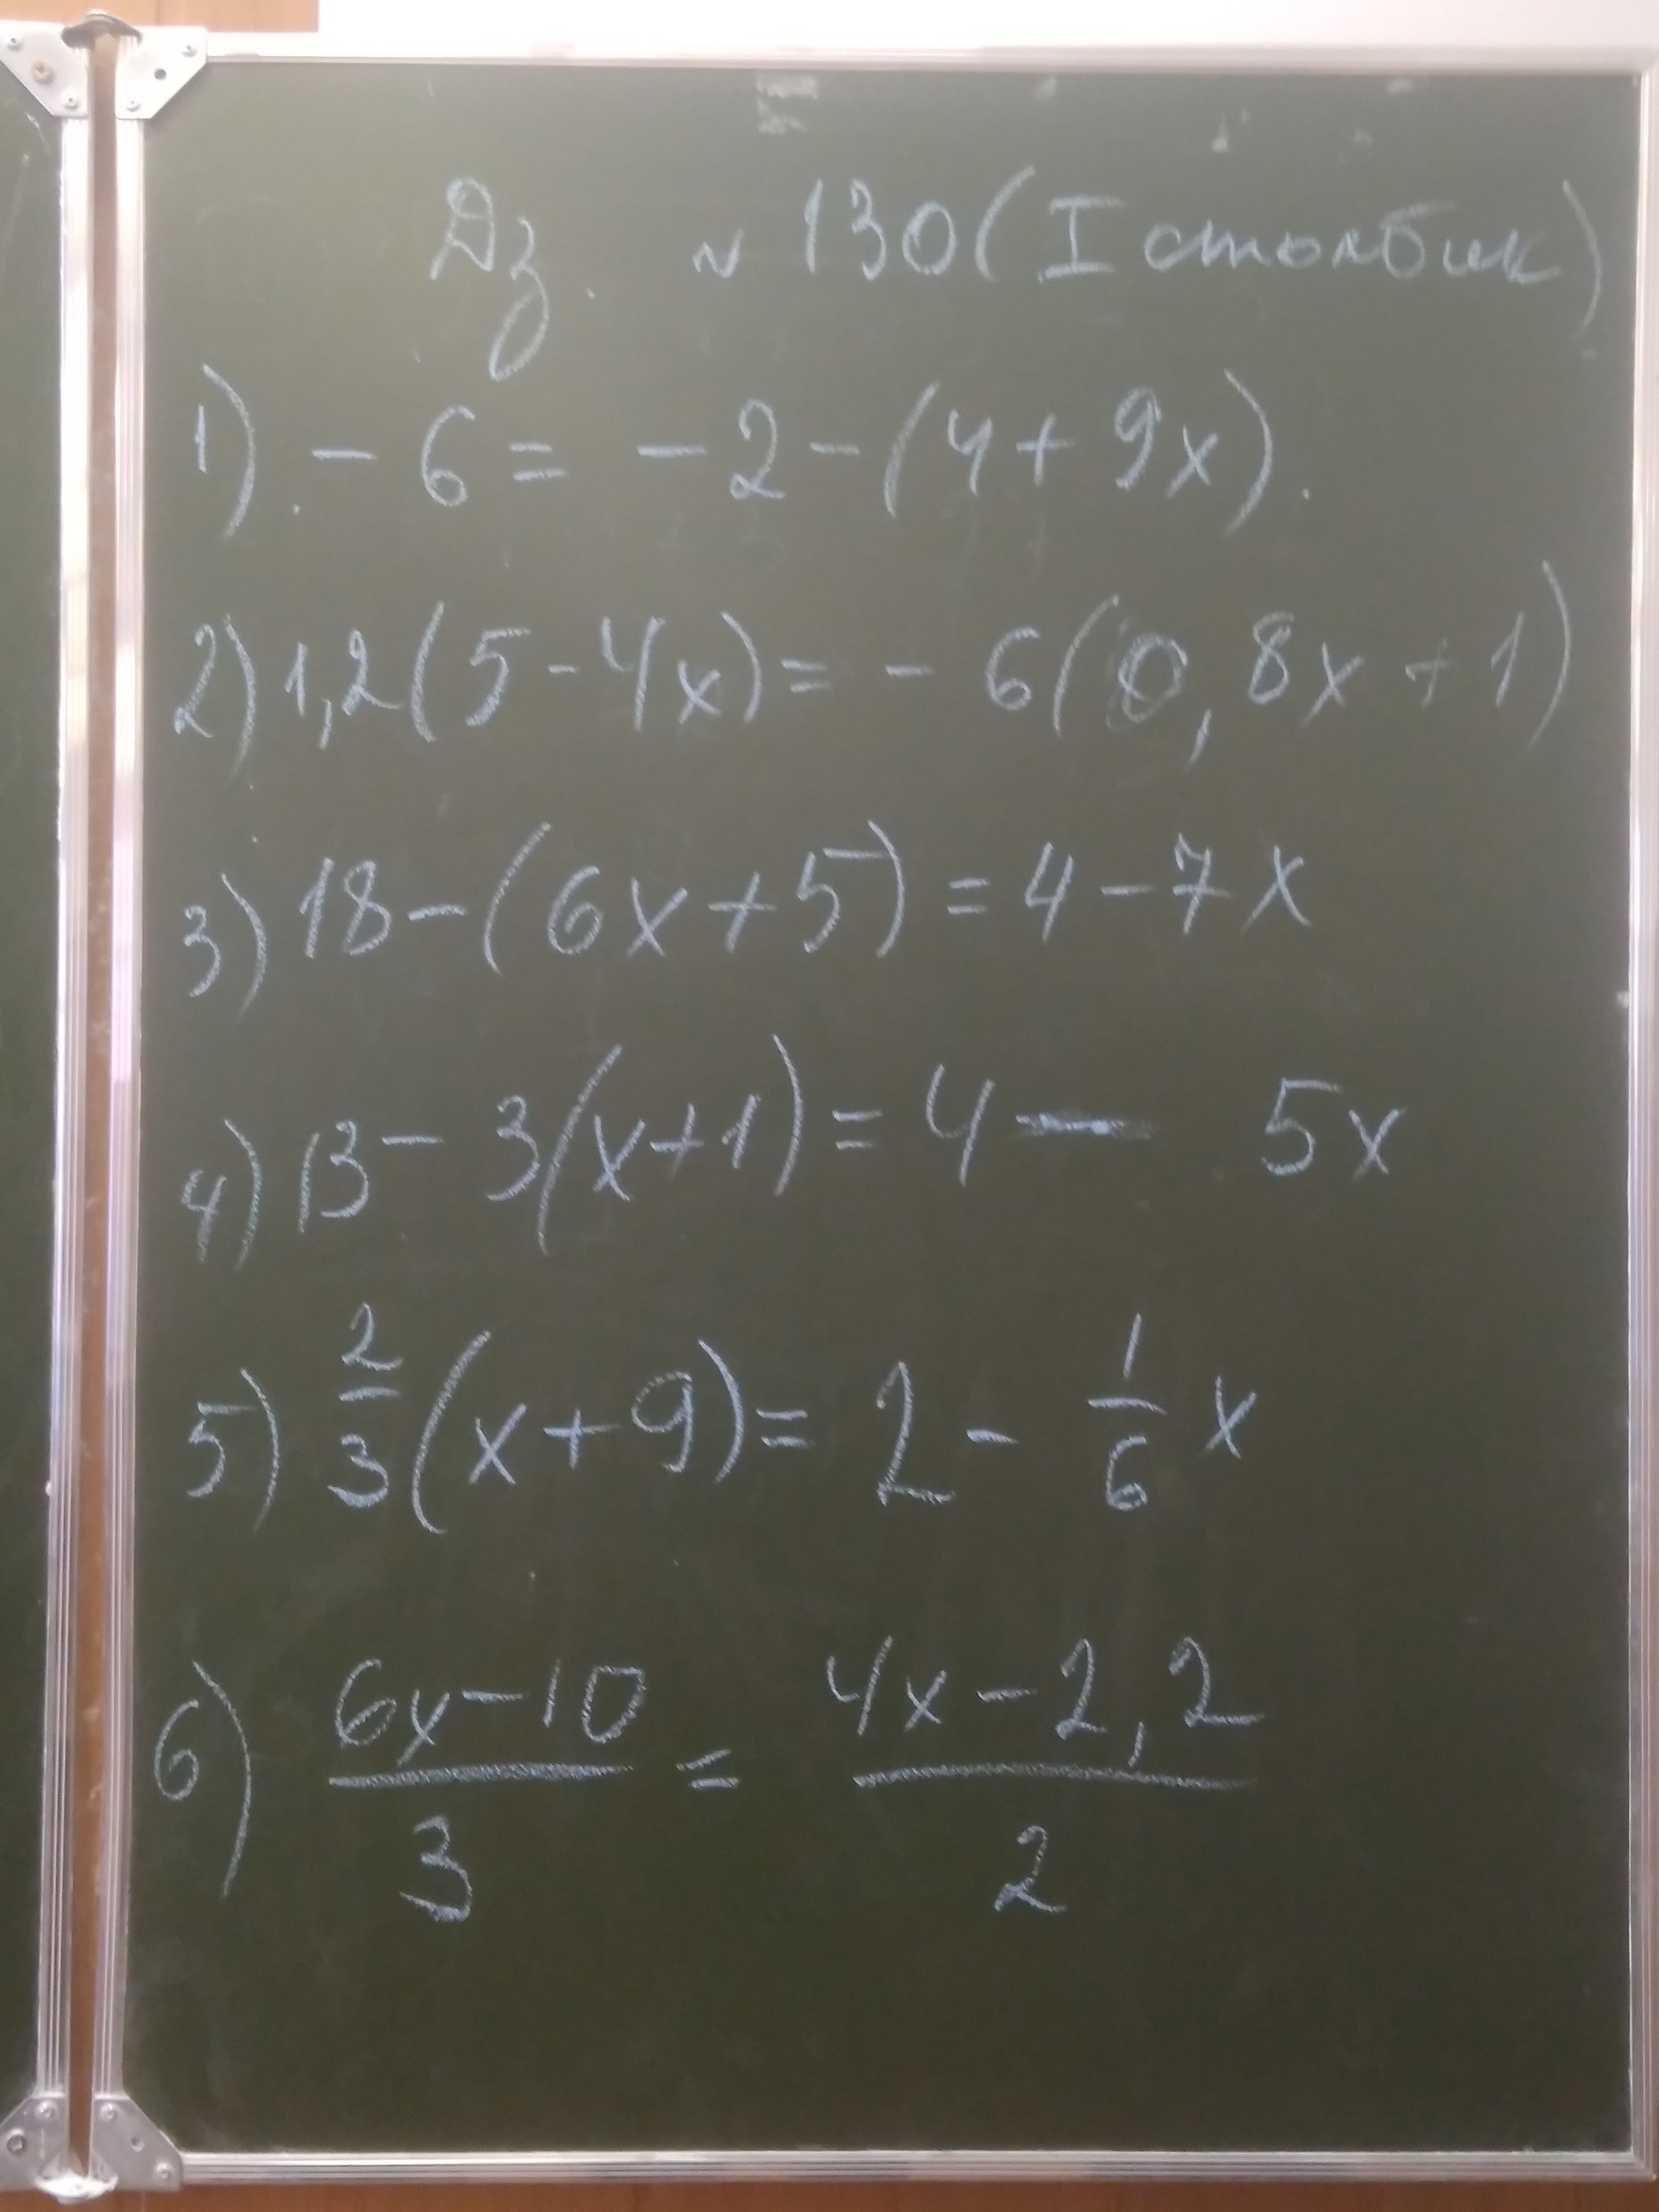 Дз. № 130 (I столбик)
1) - 6 = - 2 - (4 + 9x).
2) 1,2(5 - 4x) = - 6(0,8x + 1)
3) 18 - (6x + 5) = 4 - 7x
4) 13 - 3(x + 1) = 4 - 5x
5) 2/3 (x + 9) = 2 - 1/6 x
6) (6x - 10)/3 = (4x - 2,2)/2